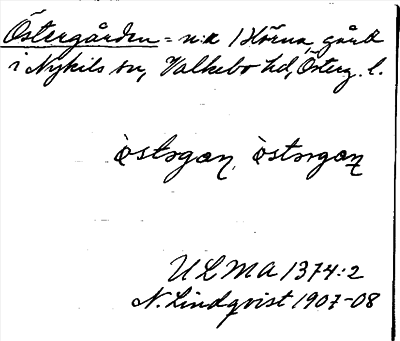 Östergården = n:a Hörna, gård
i Nykils sn, Valkebo hd, Österg. l.
ULMA 1374:2
N. Lindqvist 1907-08